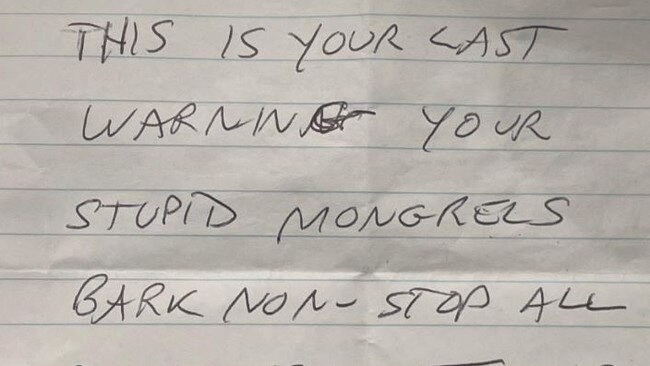 THIS IS YOUR LAST
WARNING YOUR
STUPID MONGRELS
BARK NON-STOP ALL